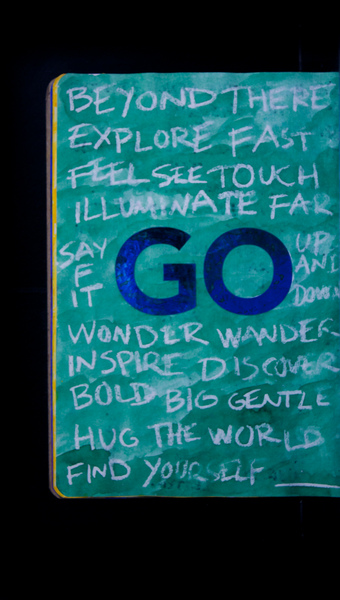 BEYOND THERE
EXPLORE FAST
FEEL SEE TOUCH
ILLUMINATE FAR
SAY
F
IT
GO
UP
AND
DOWN
WONDER WANDER
INSPIRE DISCOVER
BOLD BIG GENTLE
HUG THE WORLD
FIND YOURSELF